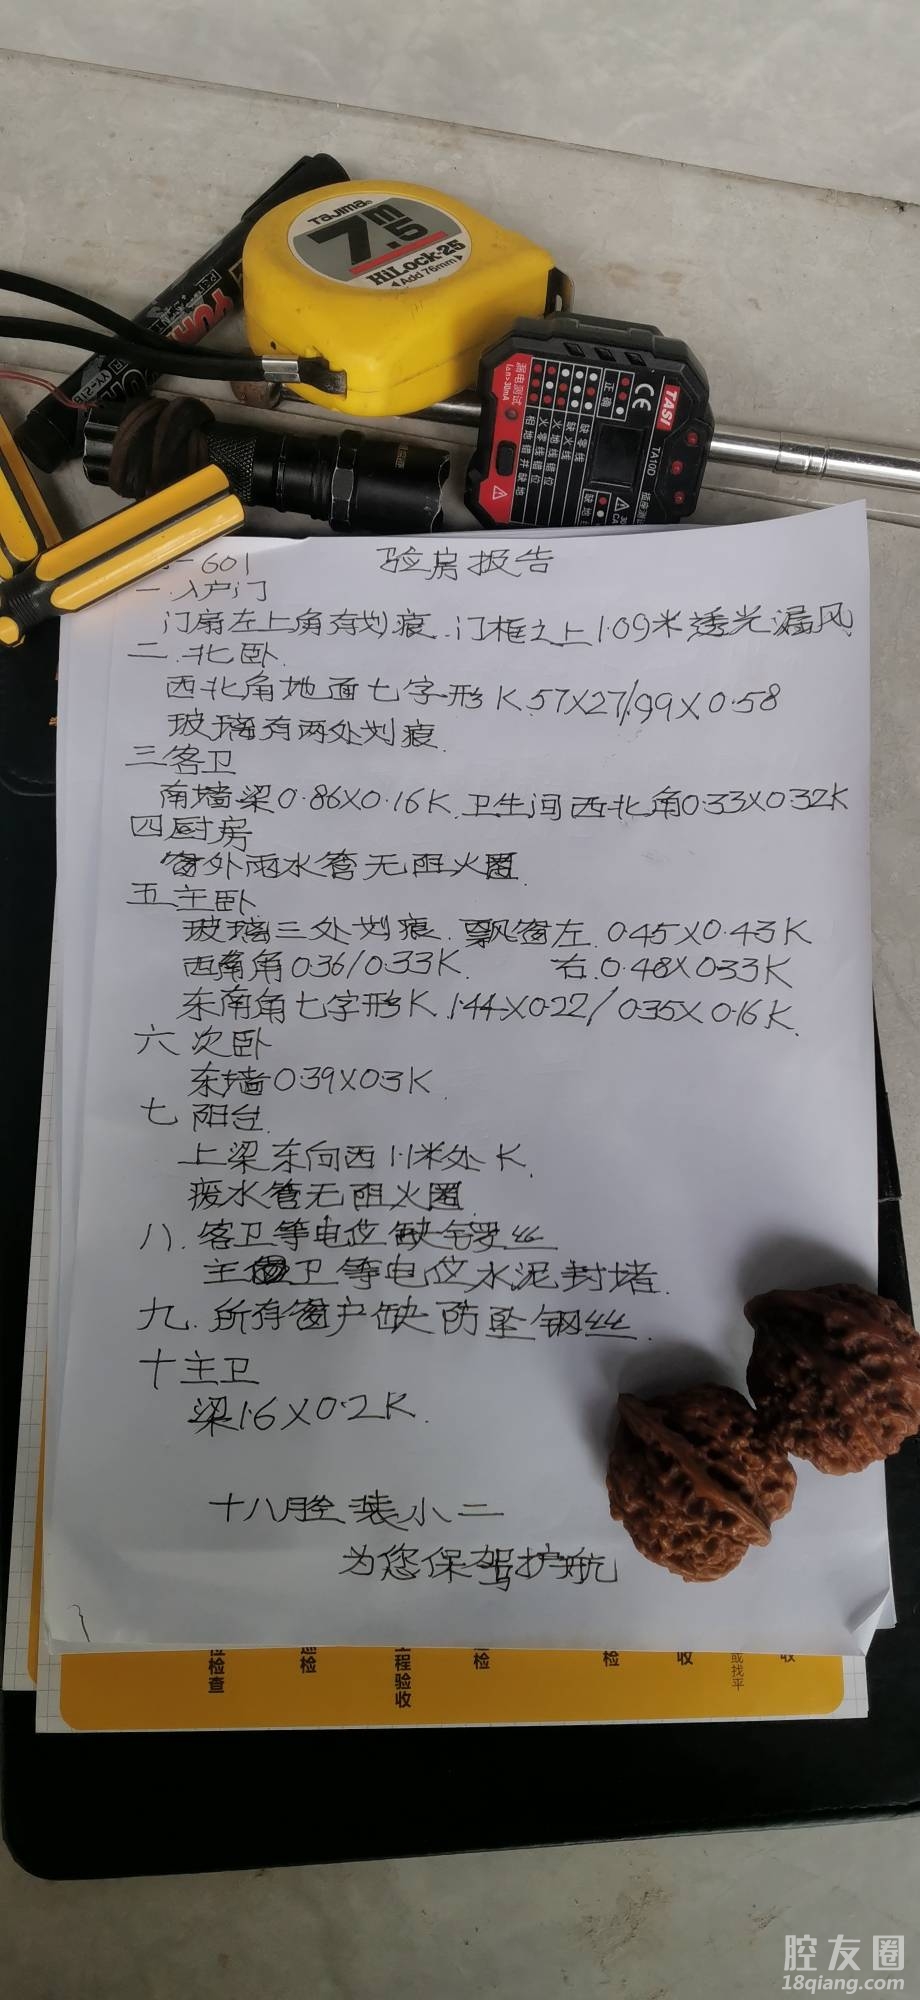 Tajima
7.5m
HiLock-25
Add 76mm
TASI
TA10D
CE
漏电测试
I△n>30mA
正确
缺零线
缺火线
火地线错位
火零线错位
-601
验房报告
一.入户门
门扇左上角有划痕.门框之上1.09米透光漏风
二.北卧.
西北角地面七字形K.57X27/.99X0.58
玻璃有两处划痕.
三客卫
南墙梁0.86X0.16K.卫生间西北角0.33X0.32K
四厨房
窗外雨水管无阻火圈.
五主卧
玻璃三处划痕.飘窗左.0.45X0.43K
西南角0.36/0.33K. 右.0.48X033K
东南角七字形K.1.44X0.22/0.35X0.16K.
六次卧
东墙0.39X03K.
七阳台.
上梁东向西1.1米处K.
废水管无阻火圈.
八.客卫等电位缺螺丝
主卫等电位水泥封堵.
九.所有窗户缺防坠钢丝.
十主卫
梁1.6X0.2K.
十八腔装小二
为您保驾护航
检查
巡检
工程验收
检
检
收
或找平
收
腔友圈
18qiang.com